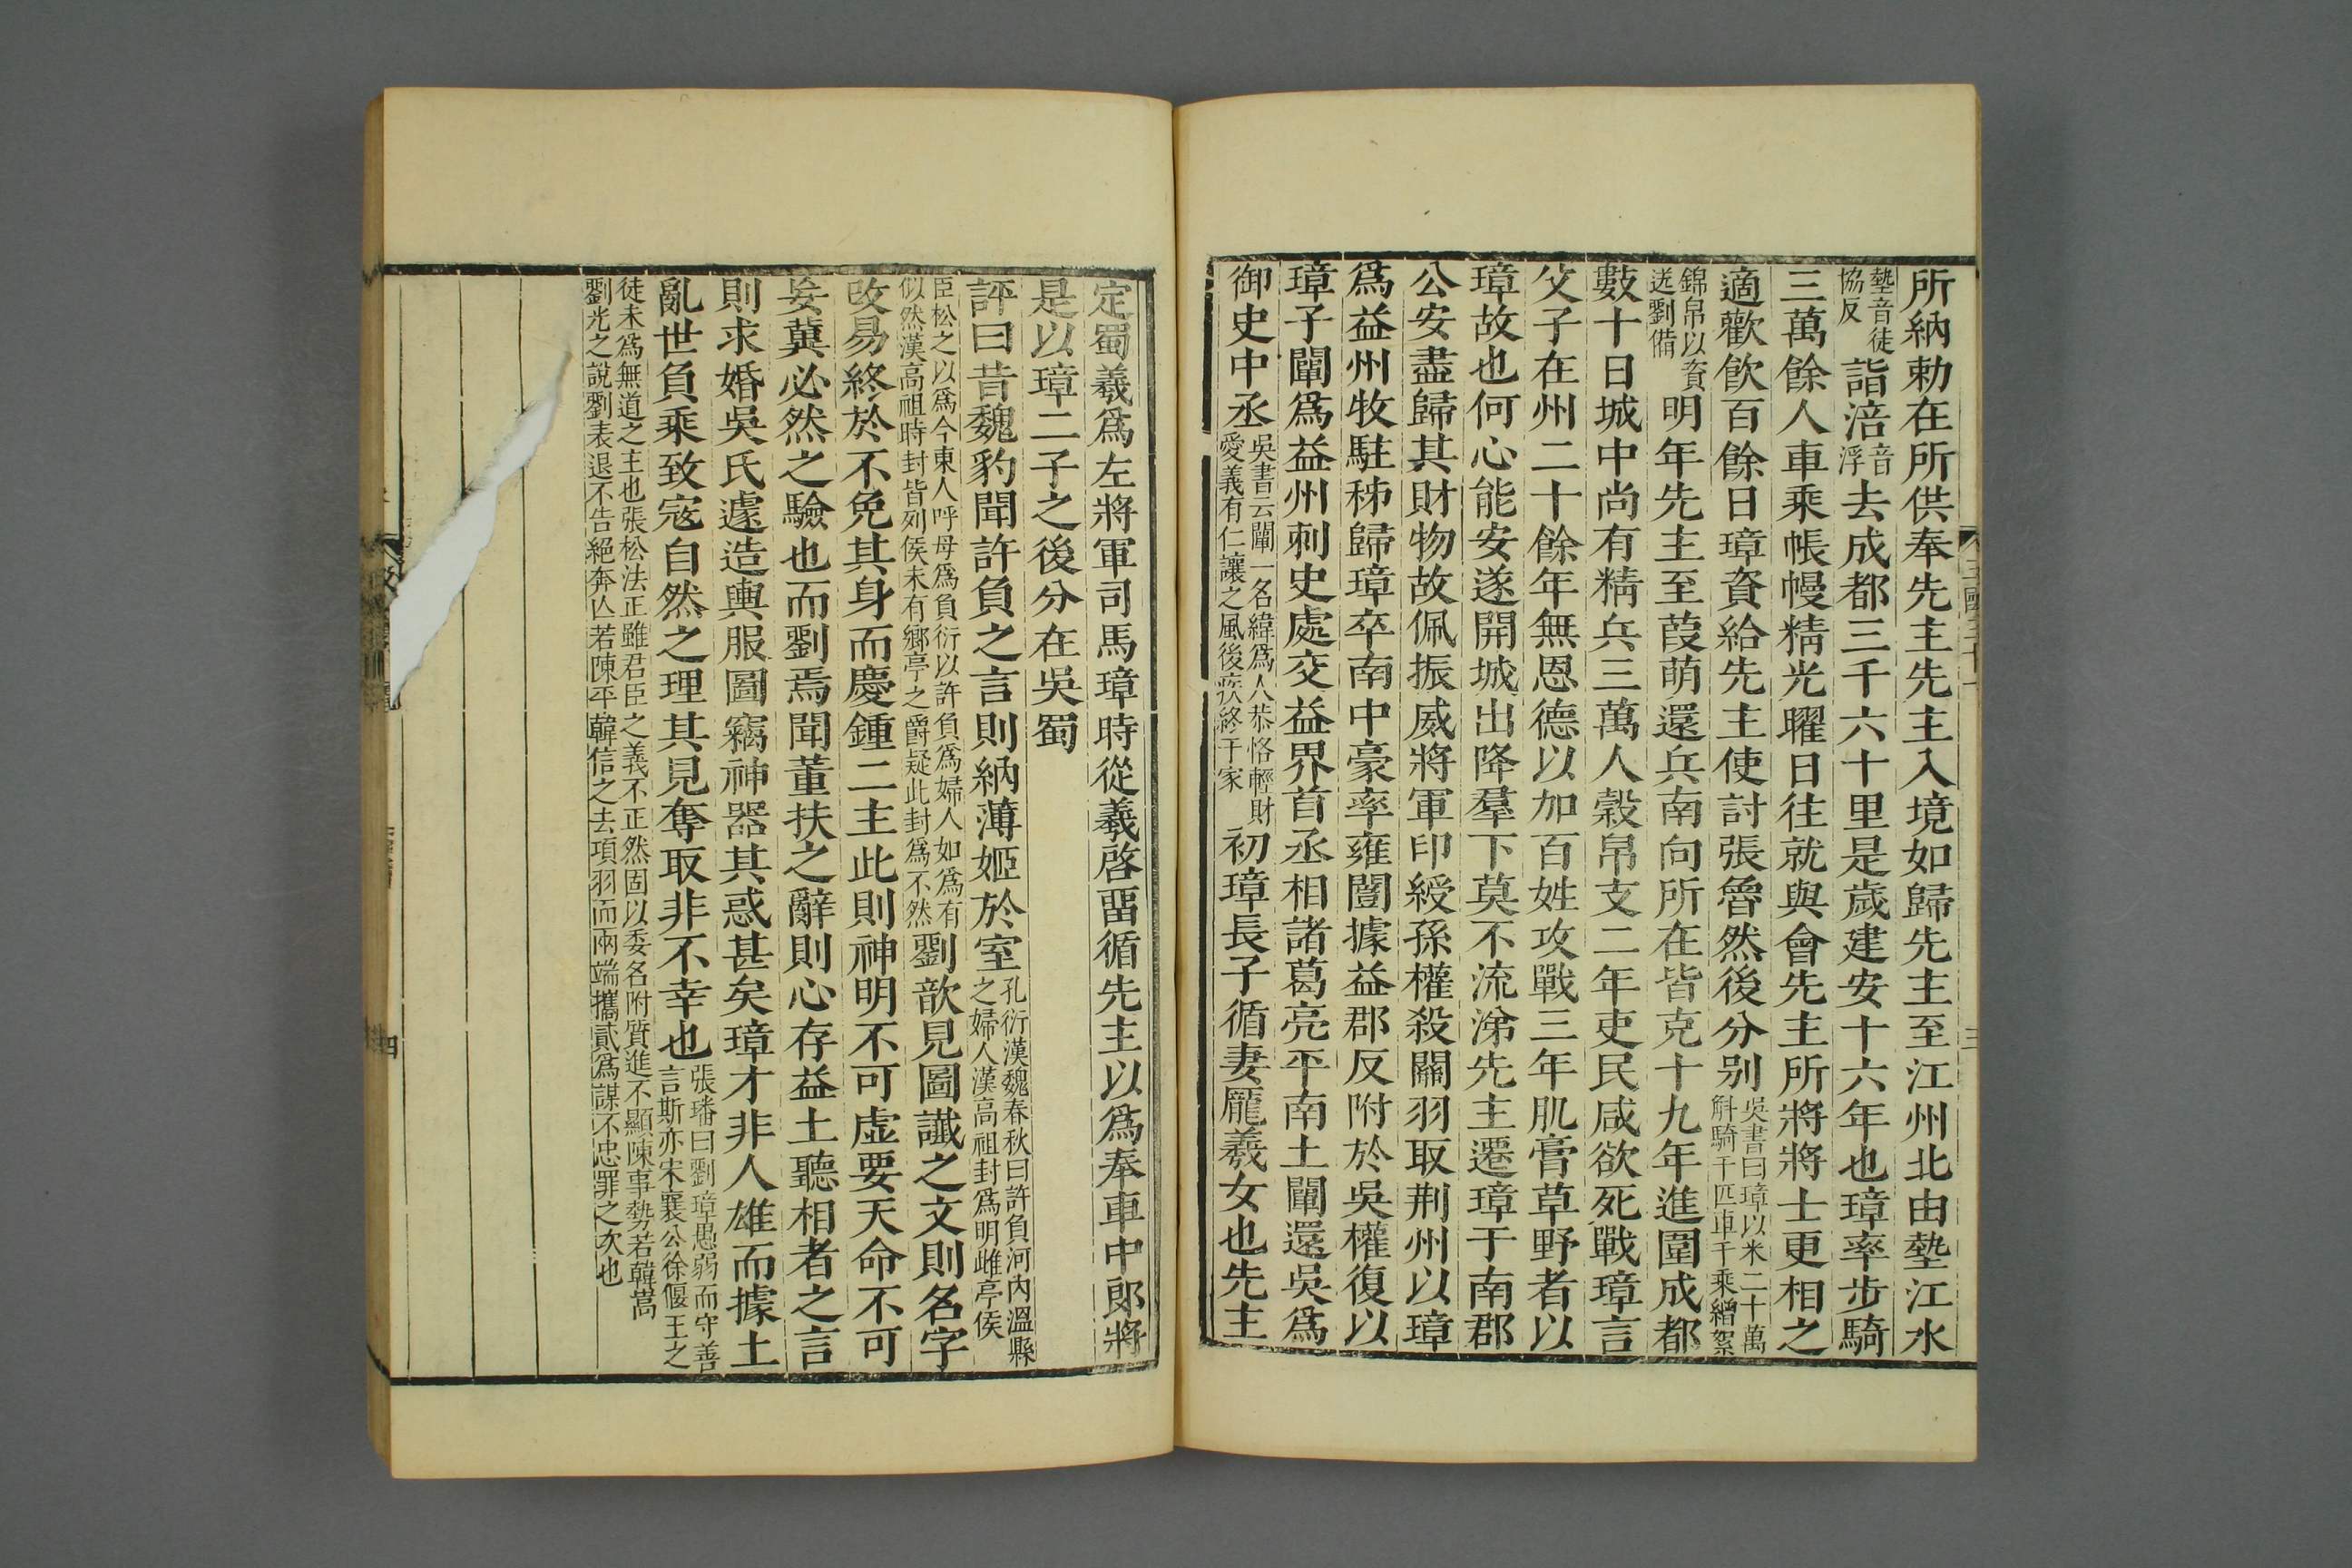 所納勅在所供奉先主先主入境如歸先主至江州北由墊江水
墊音徒
協反
詣涪
音
浮
去成都三千六十里是歲建安十六年也璋率步騎
三萬餘人車乘帳幔精光曜日往就與會先主所將將士更相之
適歡飲百餘日璋資給先主使討張魯然後分別
吳書曰璋以米二十萬
斛騎千匹車千乘繒絮
錦帛以資
送劉備
明年先主至葭萌還兵南向所在皆克十九年進圍成都
數十日城中尚有精兵三萬人穀帛支二年吏民咸欲死戰璋言
父子在州二十餘年無恩德以加百姓攻戰三年肌膏草野者以
璋故也何心能安遂開城出降羣下莫不流涕先主遷璋于南郡
公安盡歸其財物故佩振威將軍印綬孫權殺關羽取荆州以璋
爲益州牧駐秭歸璋卒南中豪率雍闓據益郡反附於吳權復以
璋子闡爲益州刺史處交益界首丞相諸葛亮平南土闡還吳爲
御史中丞
吳書云闡一名緯爲人恭恪輕財
愛義有仁讓之風後疾終于家
初璋長子循妻龐羲女也先主
三
定蜀羲爲左將軍司馬璋時從羲啓畱循先主以爲奉車中郎將
是以璋二子之後分在吳蜀
評曰昔魏豹聞許負之言則納薄姬於室
孔衍漢魏春秋曰許負河內溫縣
之婦人漢高祖封爲明雌亭侯
臣松之以爲今東人呼母爲負衍以許負爲婦人如爲有
似然漢高祖時封皆列侯未有鄉亭之爵疑此封爲不然
劉歆見圖讖之文則名字
改易終於不免其身而慶鍾二主此則神明不可虛要天命不可
妄冀必然之驗也而劉焉聞董扶之辭則心存益土聽相者之言
則求婚吳氏遽造輿服圖竊神器其惑甚矣璋才非人雄而據土
亂世負乘致寇自然之理其見奪取非不幸也
張璠曰劉璋愚弱而守善
言斯亦宋襄公徐偃王之
徒未爲無道之主也張松法正雖君臣之義不正然固以委名附質進不顯陳事勢若韓嵩
劉光之說劉表退不告絕奔亾若陳平韓信之去項羽而兩端攜貳爲謀不忠罪之次也
四